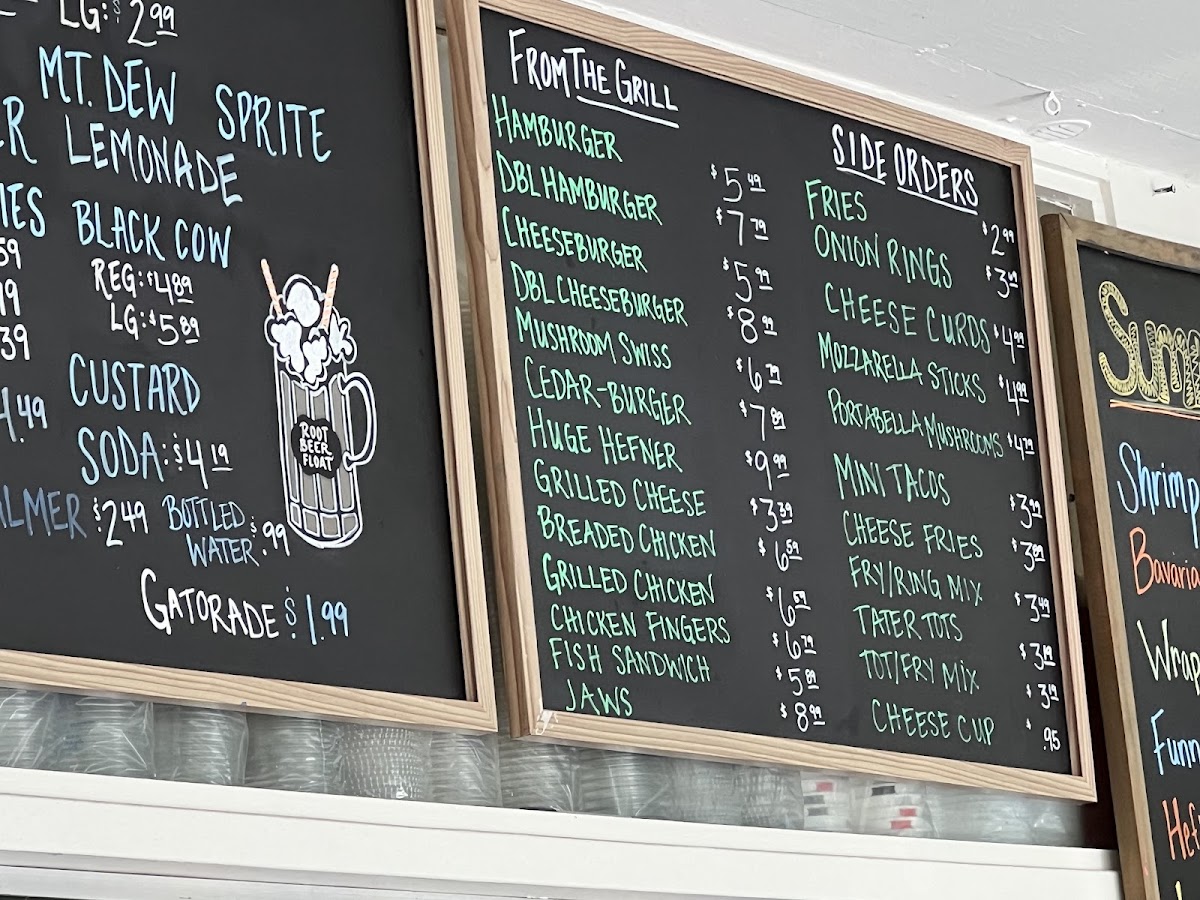 LG: $2.99
MT. DEW SPRITE
LEMONADE
BLACK COW
REG: $4.89
LG: $5.89
CUSTARD
SODA: $4.19
$2.49
BOTTLED WATER $.99
GATORADE $1.99
ROOT
BEER
FLOAT
FROM THE GRILL
HAMBURGER $5.49
DBL HAMBURGER $7.79
CHEESEBURGER $5.99
DBL CHEESEBURGER $8.99
MUSHROOM SWISS $6.79
CEDAR-BURGER $7.89
HUGE HEFNER $9.99
GRILLED CHEESE $3.39
BREADED CHICKEN $6.59
GRILLED CHICKEN $6.59
CHICKEN FINGERS $6.79
FISH SANDWICH $5.89
JAWS $8.99
SIDE ORDERS
FRIES $2.99
ONION RINGS
CHEESE CURDS $4.99
MOZZARELLA STICKS $4.99
PORTABELLA MUSHROOMS $4.79
MINI TACOS $3.99
CHEESE FRIES $3.89
FRY/RING MIX $3.49
TATER TOTS $3.19
TOT/FRY MIX $3.19
CHEESE CUP .95
Shrimp
Bavaria
Wrap
Funn
Hef